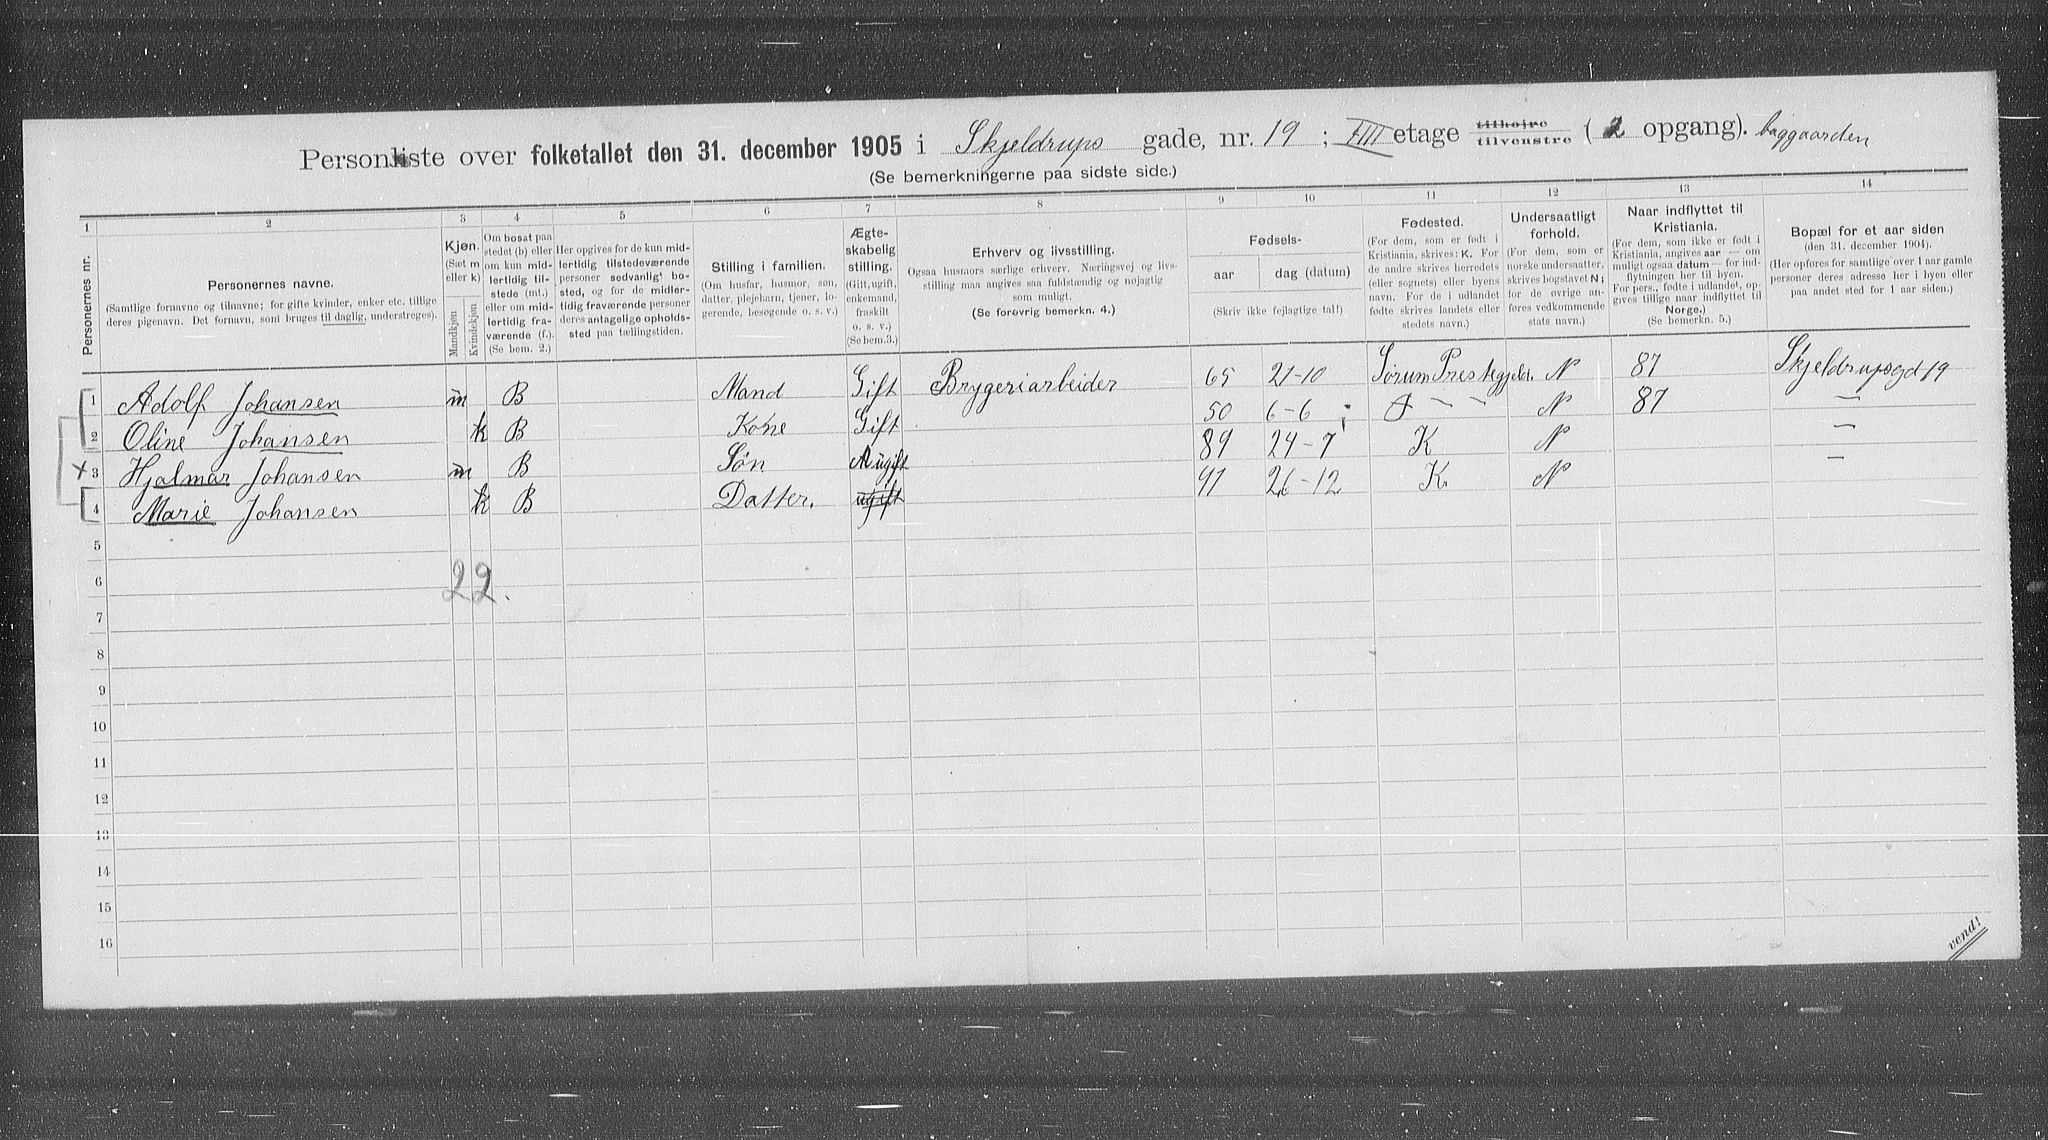 Personliste over folketallet den 31. december 1905 i Skjeldrups gade, nr. 19 ; IIII etage tilhøire tilvenstre ( 2 opgang). baggaarden
(Se bemerkningerne paa sidste side.)
1 2 3 4 5 6 7 8 9 10 11 12 13 14
Personernes nr.
Personernes navne.
(Samtlige fornavne og tilnavne; for gifte kvinder, enker etc. tillige
deres pigenavn. Det fornavn, som bruges til daglig, understreges).
Kjøn.
(Sæt m
eller k)
Mandkjøn
Kvindekjøn
Om bosat paa
stedet (b) eller
om kun mid-
lertidig til-
stede (mt.)
eller om mid-
lertidig fra-
værende (f.)
(Se bem. 2.)
Her opgives for de kun mid-
lertidig tilstedeværende
personer sedvanligt bo-
sted, og for de midler-
tidig fraværende personer
deres antagelige opholds-
sted paa tællingstiden.
Stilling i familien.
(Om husfar, husmor, søn,
datter, plejebarn, tjener, lo-
gerende, besøgende o. s. v.)
Ægte-
skabelig
stilling.
(Gift, ugift,
enkemand,
fraskilt
o. s. v.)
(Se bem.3.)
Erhverv og livsstilling.
Ogsaa husmors særlige erhverv. Næringsvej og livs-
stilling maa angives saa fuldstændig og nøjagtig
som muligt.
(Se forøvrig bemerkn. 4.)
Fødsels-
aar dag (datum)
(Skriv ikke fejlagtige tal!)
Fødested.
(For dem, som er født i
Kristiania, skrives: K. For
de andre skrives herredets
(eller sognets) eller byens
navn. For de i udlandet
fødte skrives landets eller
stedets navn.)
Undersaatligt
forhold.
(For dem, som er
norske undersaatter,
skrives bogstavet N;
for de øvrige an-
føres vedkommende
stats navn.)
Naar indflyttet til
Kristiania.
(For dem, som ikke er født i
Kristiania, angives aar — om
muligt ogsaa datum — for ind-
flytningen her til byen.
For pers., fødte i udlandet, op-
gives tillige naar indflyttet til
Norge.)
(Se bemerkn. 5.)
Bopæl for et aar siden
(den 31. december 1904).
(Her opføres for samtlige over 1 aar gamle
personer deres adresse her i byen eller
paa andet sted for 1 aar siden.)
1 Adolf Johansen m B Mand Gift Brygeriarbeider 65 21-10 Sørum Prestegjeld. N 87 Skjeldrupsgd 19
2 Oline Johansen k B Kone Gift 50 6-6 N 87 —
x 3 Hjalmar Johansen m B Søn ugift 89 24-7 K N —
4 Marie Johansen k B Datter. ugift 91 26-12 K N —
5
6
22.
7
8
9
10
11
12
13
14
15
16
vend!